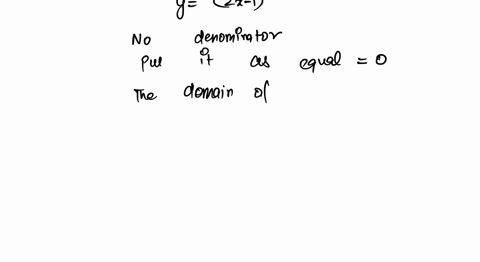 y = (2x-1)
No denominator
Put it as equal = 0
The domain of